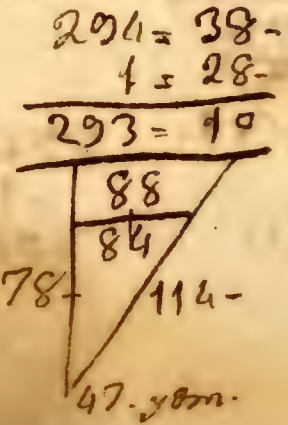 294 = 38-
1 = 28-
293 = 10
88
84
78- 114-
47.